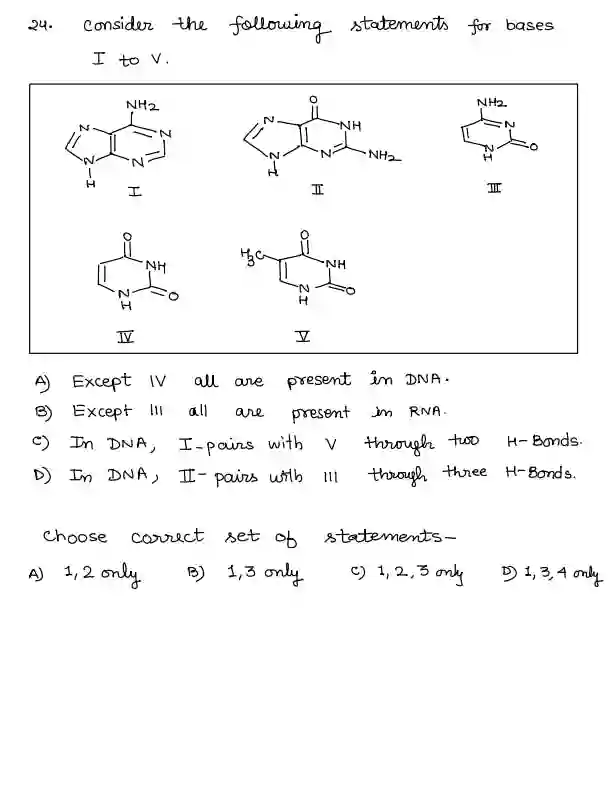 24. Consider the following statements for bases
I to V.
NH2 O NH2
N N N NH N
N N N N NH2 N O
H H H
I II III
O O
NH H3C NH
N O N O
H H
IV V
A) Except IV all are present in DNA.
B) Except III all are present in RNA.
C) In DNA, I-pairs with V through two H-Bonds.
D) In DNA, II-pairs with III through three H-Bonds.
Choose correct set of statements-
A) 1,2 only B) 1,3 only C) 1,2,3 only D) 1,3,4 only